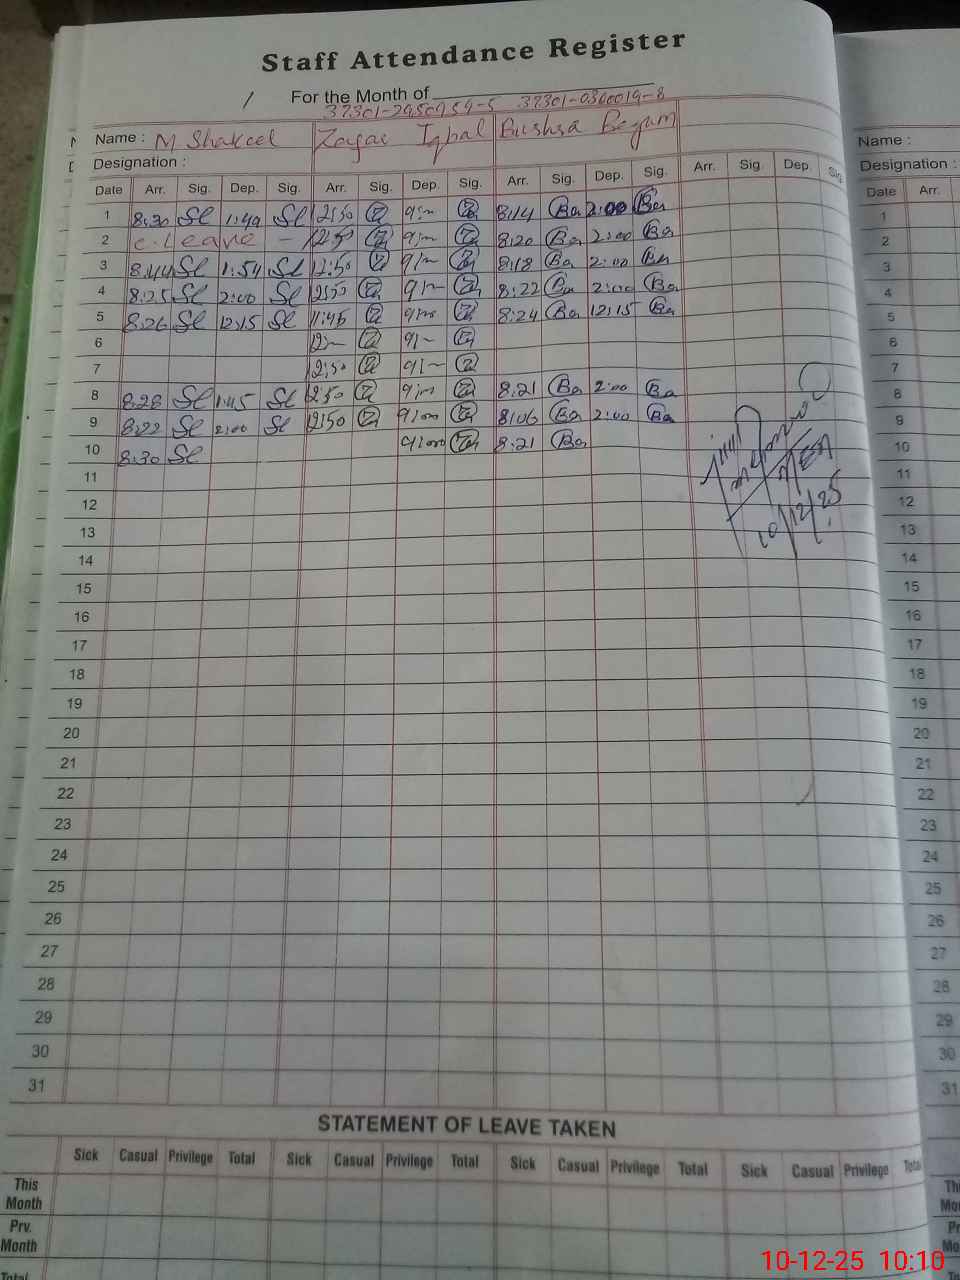 Staff Attendance Register
For the Month of
37301-2950959-5 37301-0360019-8
Name : M Shakeel Iqbal Bushra Begum
Designation :
Date Arr. Sig. Dep. Sig. Arr. Sig. Dep. Sig. Arr. Sig. Dep. Sig. Arr. Sig. Dep. Sig.
1 8:30 Sl 1:49 Sl 12:50 8:14 Ba 2:00 Ba
2 C. Leave - 12:50 8:20 Ba 2:00 Ba
3 8:44 Sl 1:54 Sl 12:50 8:18 Ba 2:00 Ba
4 8:25 Sl 2:00 Sl 12:50 8:22 Ba 2:00 Ba
5 8:26 Sl 12:15 Sl 11:45 8:24 Ba 12:15 Ba
6
7 12:50
8 8:28 Sl 1:45 Sl 12:50 9:00 8:21 Ba 2:00 Ba
9 8:22 Sl 2:00 Sl 12:50 9:00 8:06 Ba 2:00 Ba
10 8:30 Sl 9:00 8:21 Ba
11
12
13
14
15
16
17
18
19
20
21
22
23
24
25
26
27
28
29
30
31
MEA
10/12/25
STATEMENT OF LEAVE TAKEN
Sick Casual Privilege Total Sick Casual Privilege Total Sick Casual Privilege Total Sick Casual Privilege Total
This Month
Prv. Month
Total
Name :
Designation :
Date Arr.
1
2
3
4
5
6
7
8
9
10
11
12
13
14
15
16
17
18
19
20
21
22
23
24
25
26
27
28
29
30
31
10-12-25 10:10